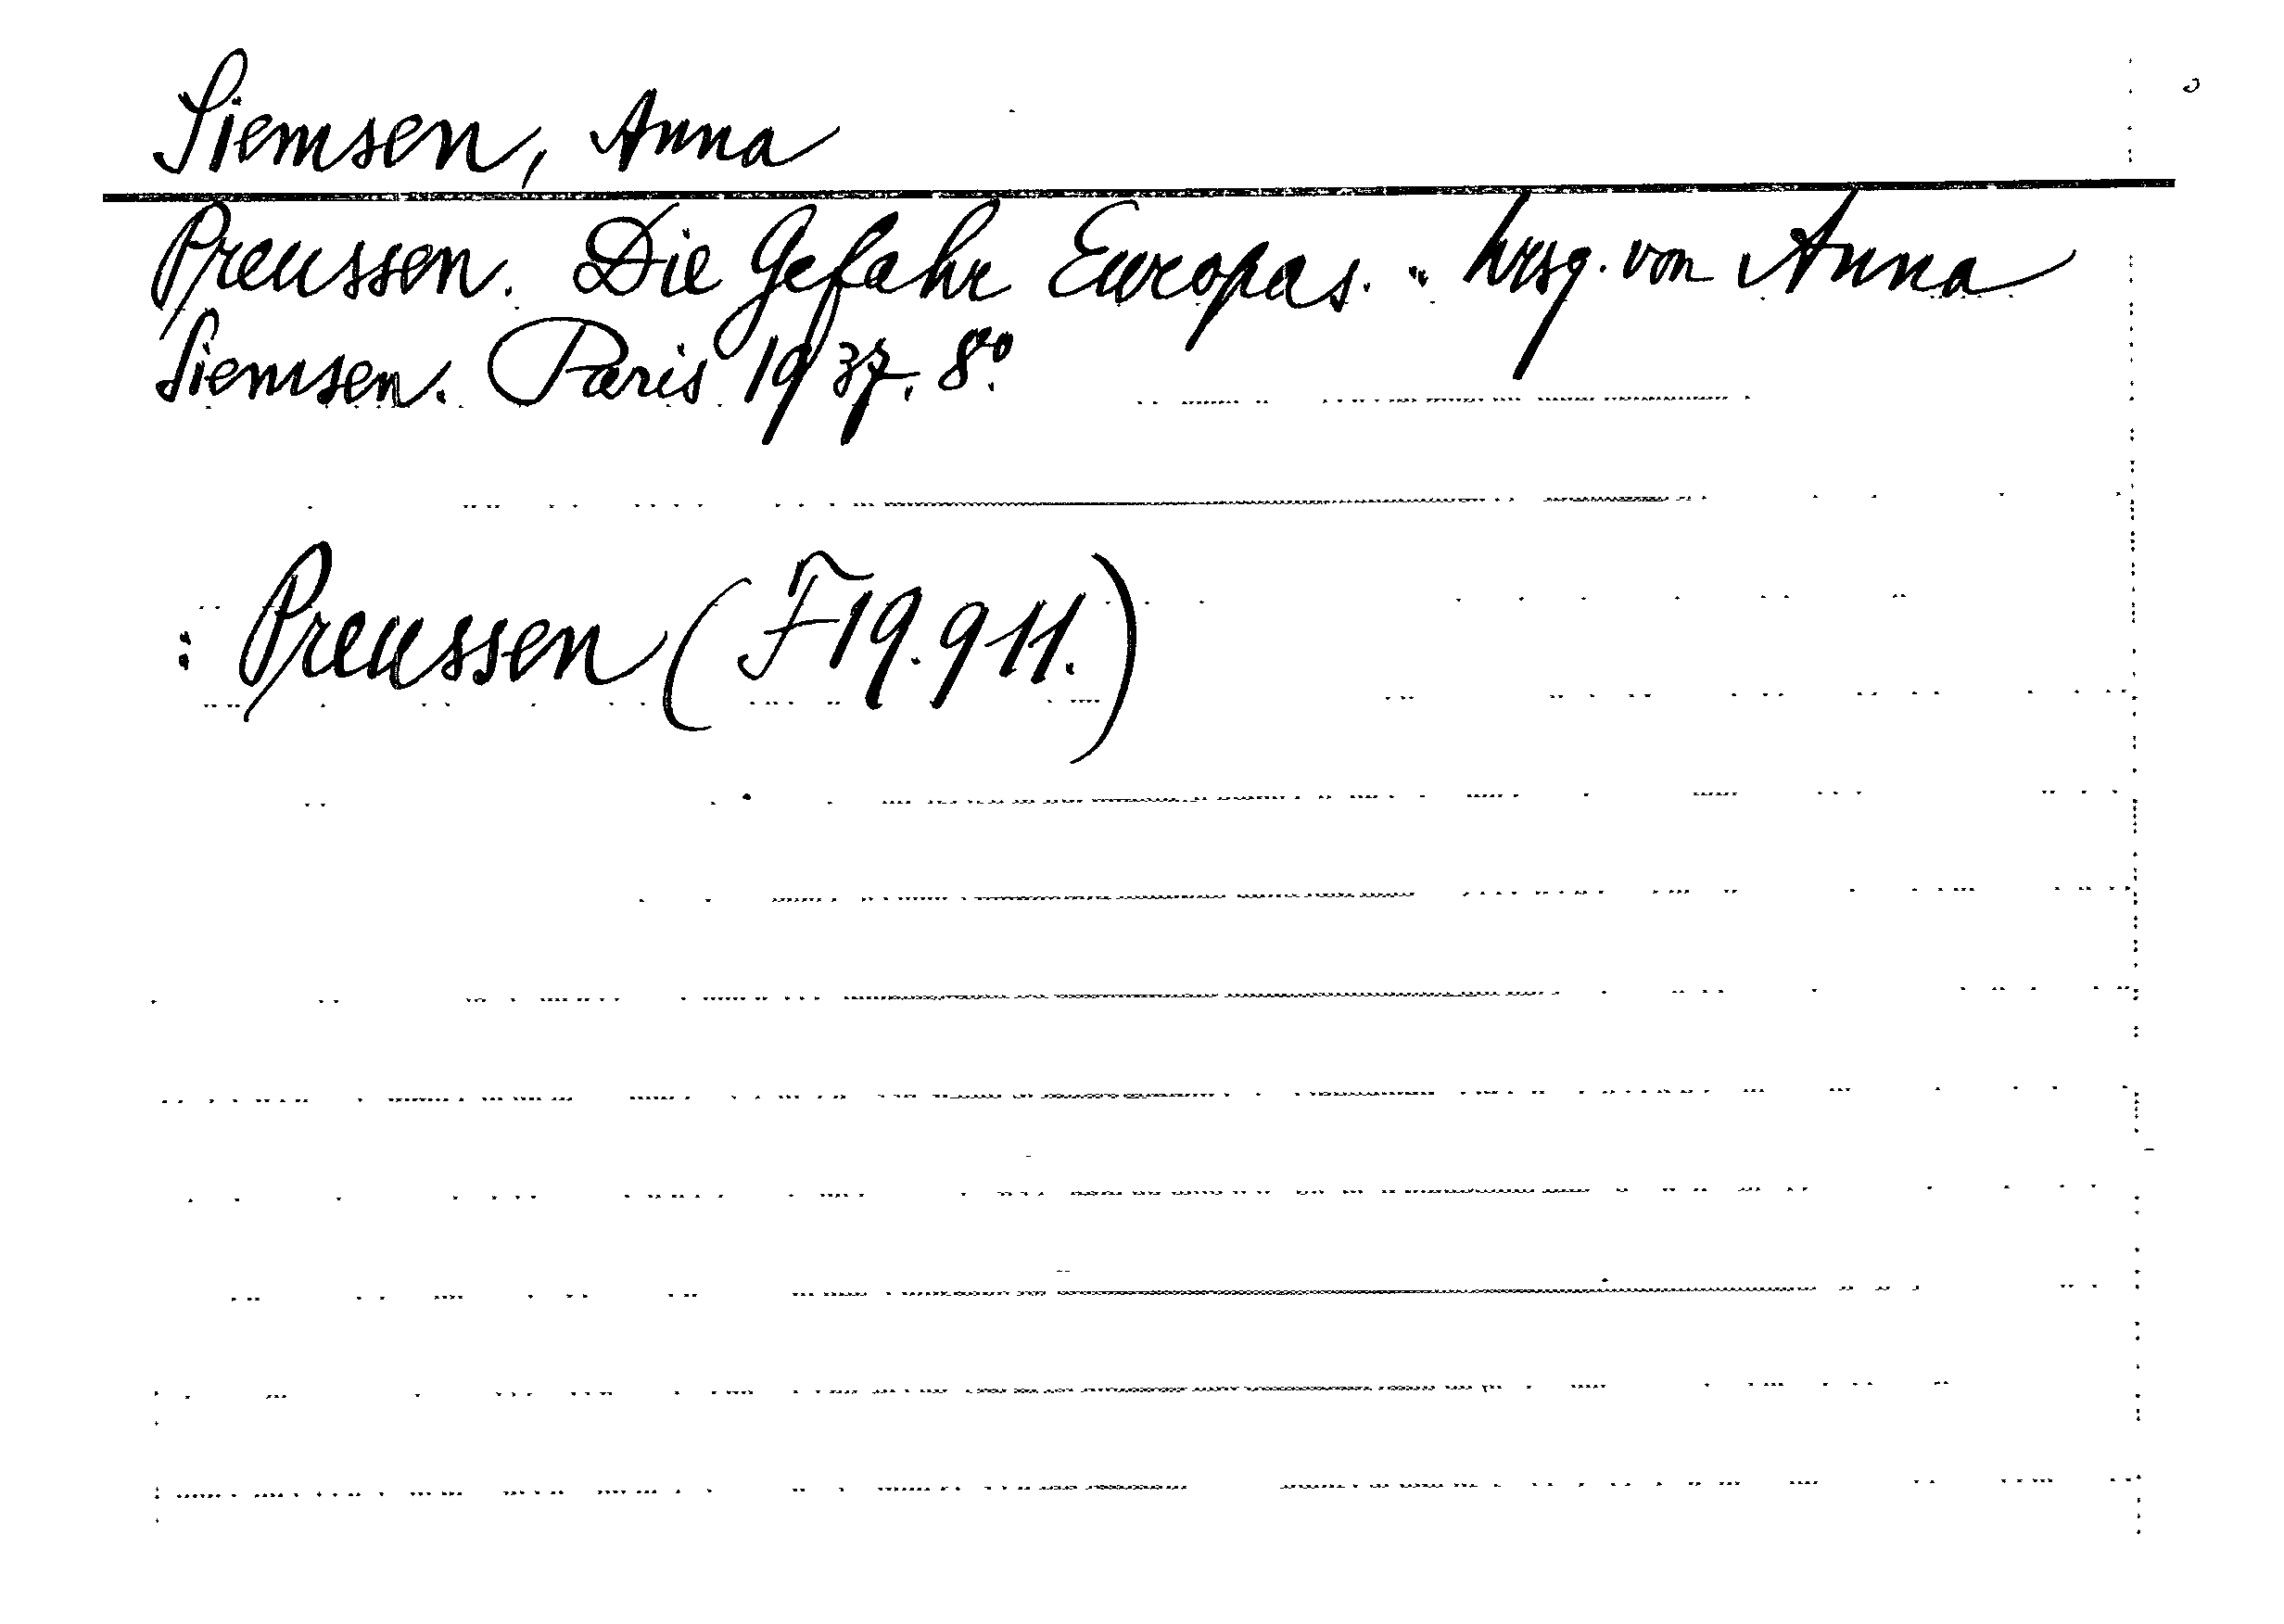 Siemsen, Anna
Preussen. Die Gefahr Europas. .. hrsg. von Anna
Siemsen. Paris 1937. 8º.
: Preussen (F 19.911.)